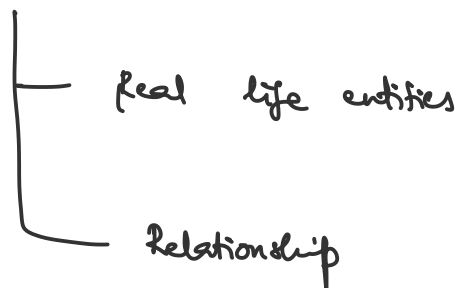 Real life entities
Relationship